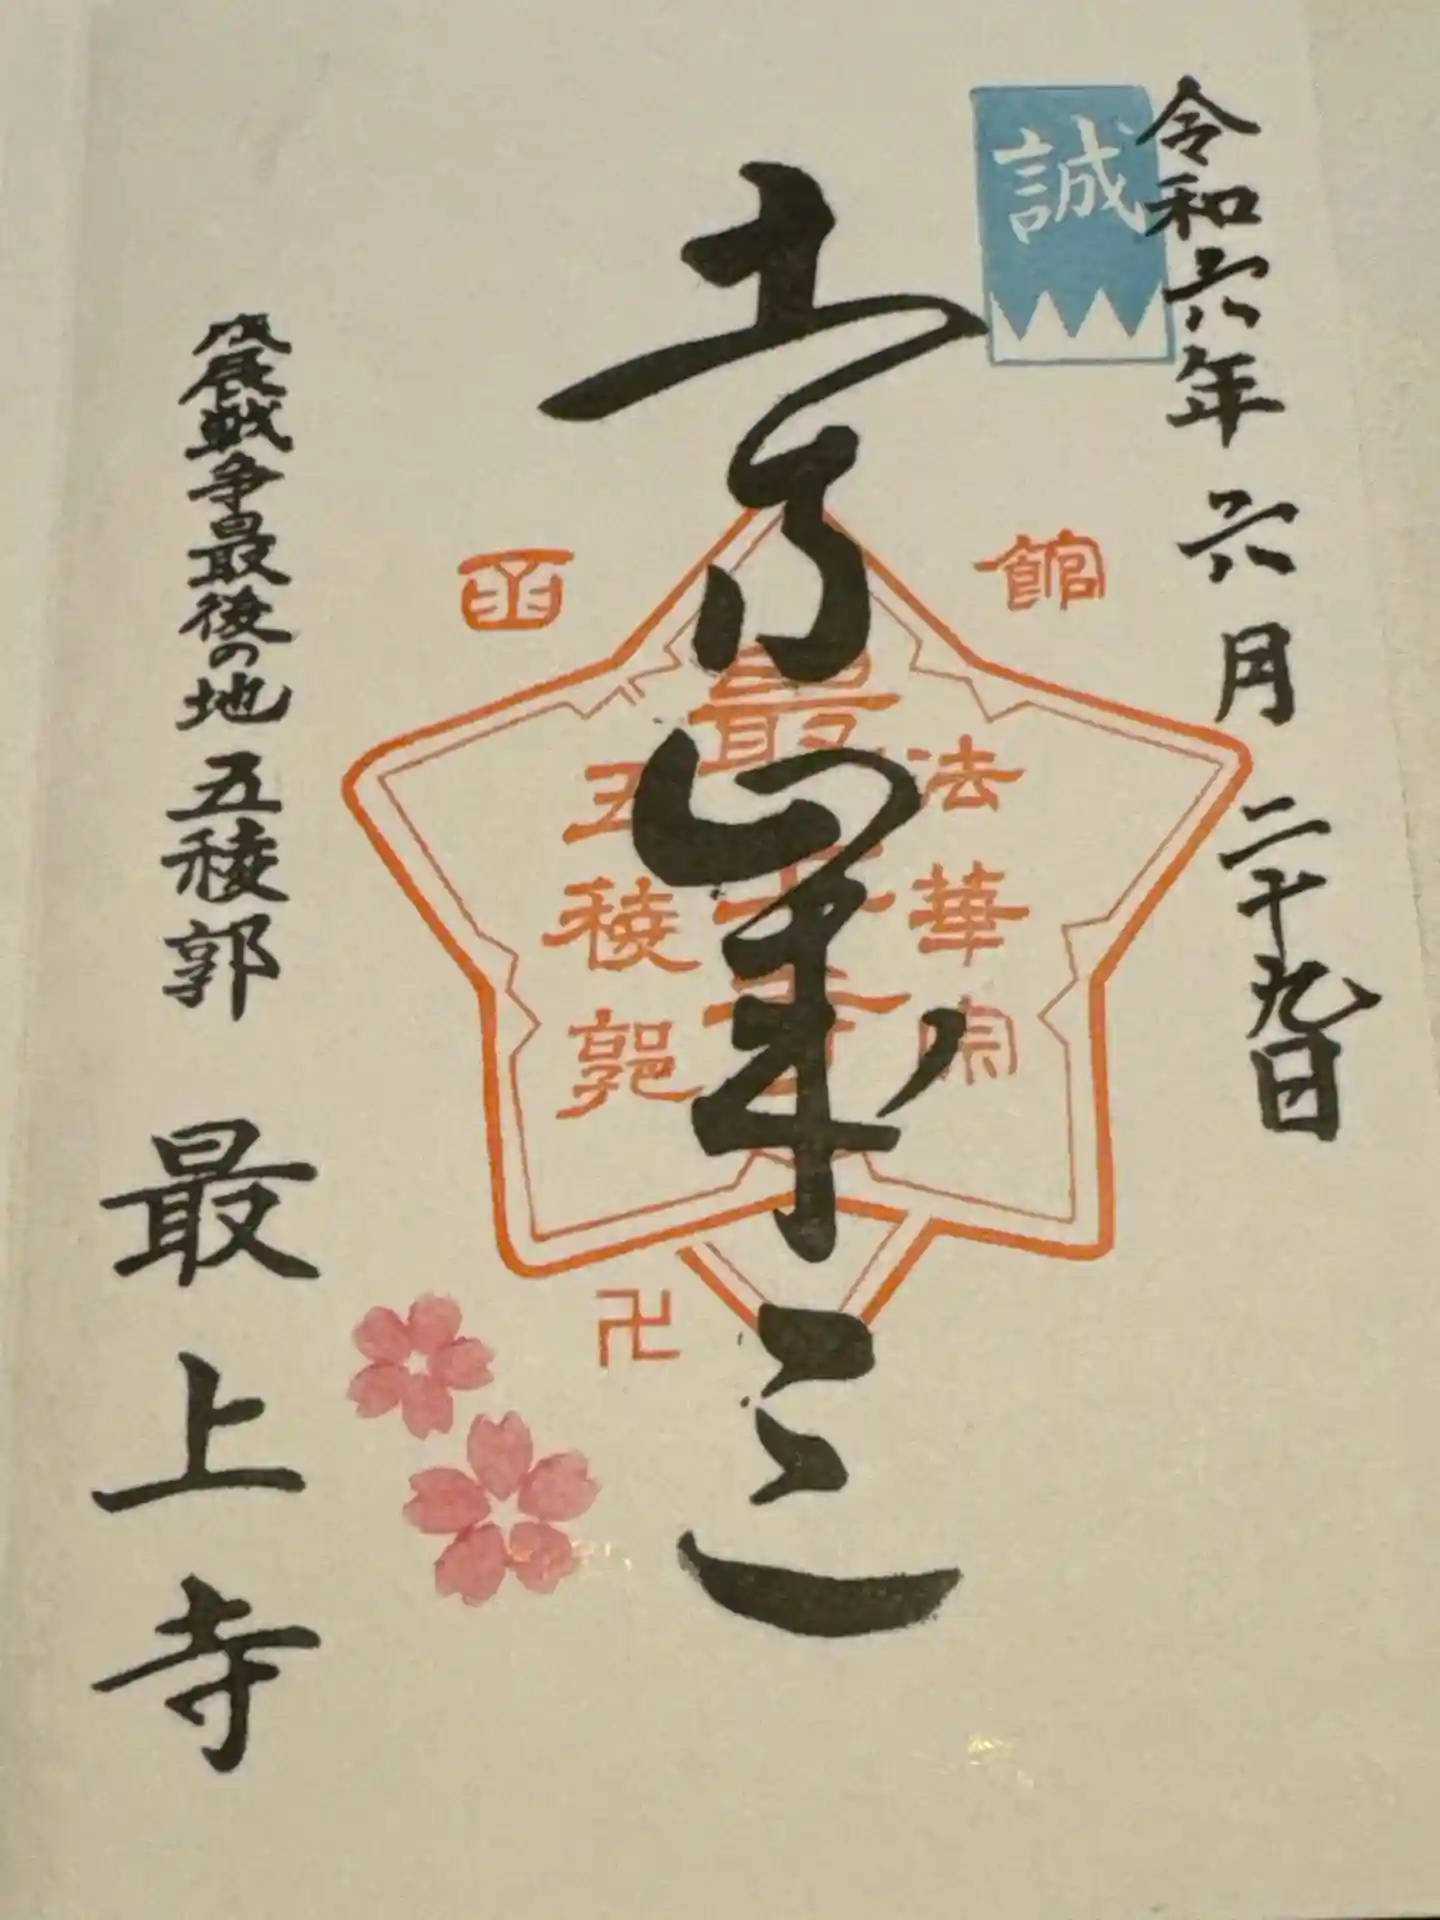 令和六年六月二十九日
誠
土方歳三
函館
法華宗
最上寺
五稜郭
卍
戊辰戦争最後の地 五稜郭 最上寺